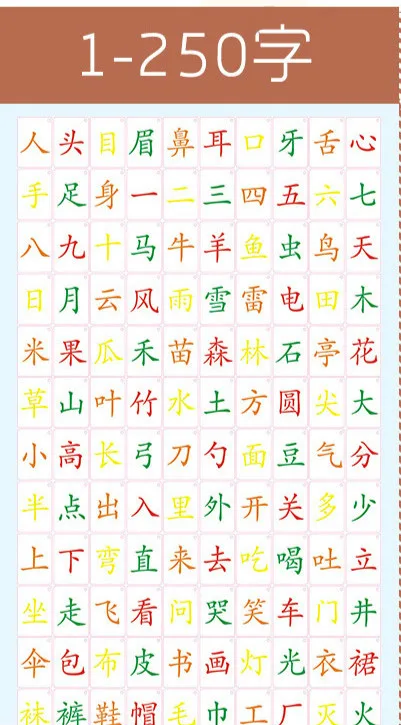 1-250字
人头目眉鼻耳口牙舌心
手足身一二三四五六七
八九十马牛羊鱼虫鸟天
日月云风雨雪雷电田木
米果瓜禾苗森林石亭花
草山叶竹水土方圆尖大
小高长弓刀勺面豆气分
半点出入里外开关多少
上下弯直来去吃喝吐立
坐走飞看问哭笑车门井
伞包布皮书画灯光衣裙
袜裤鞋帽毛巾工厂灭火